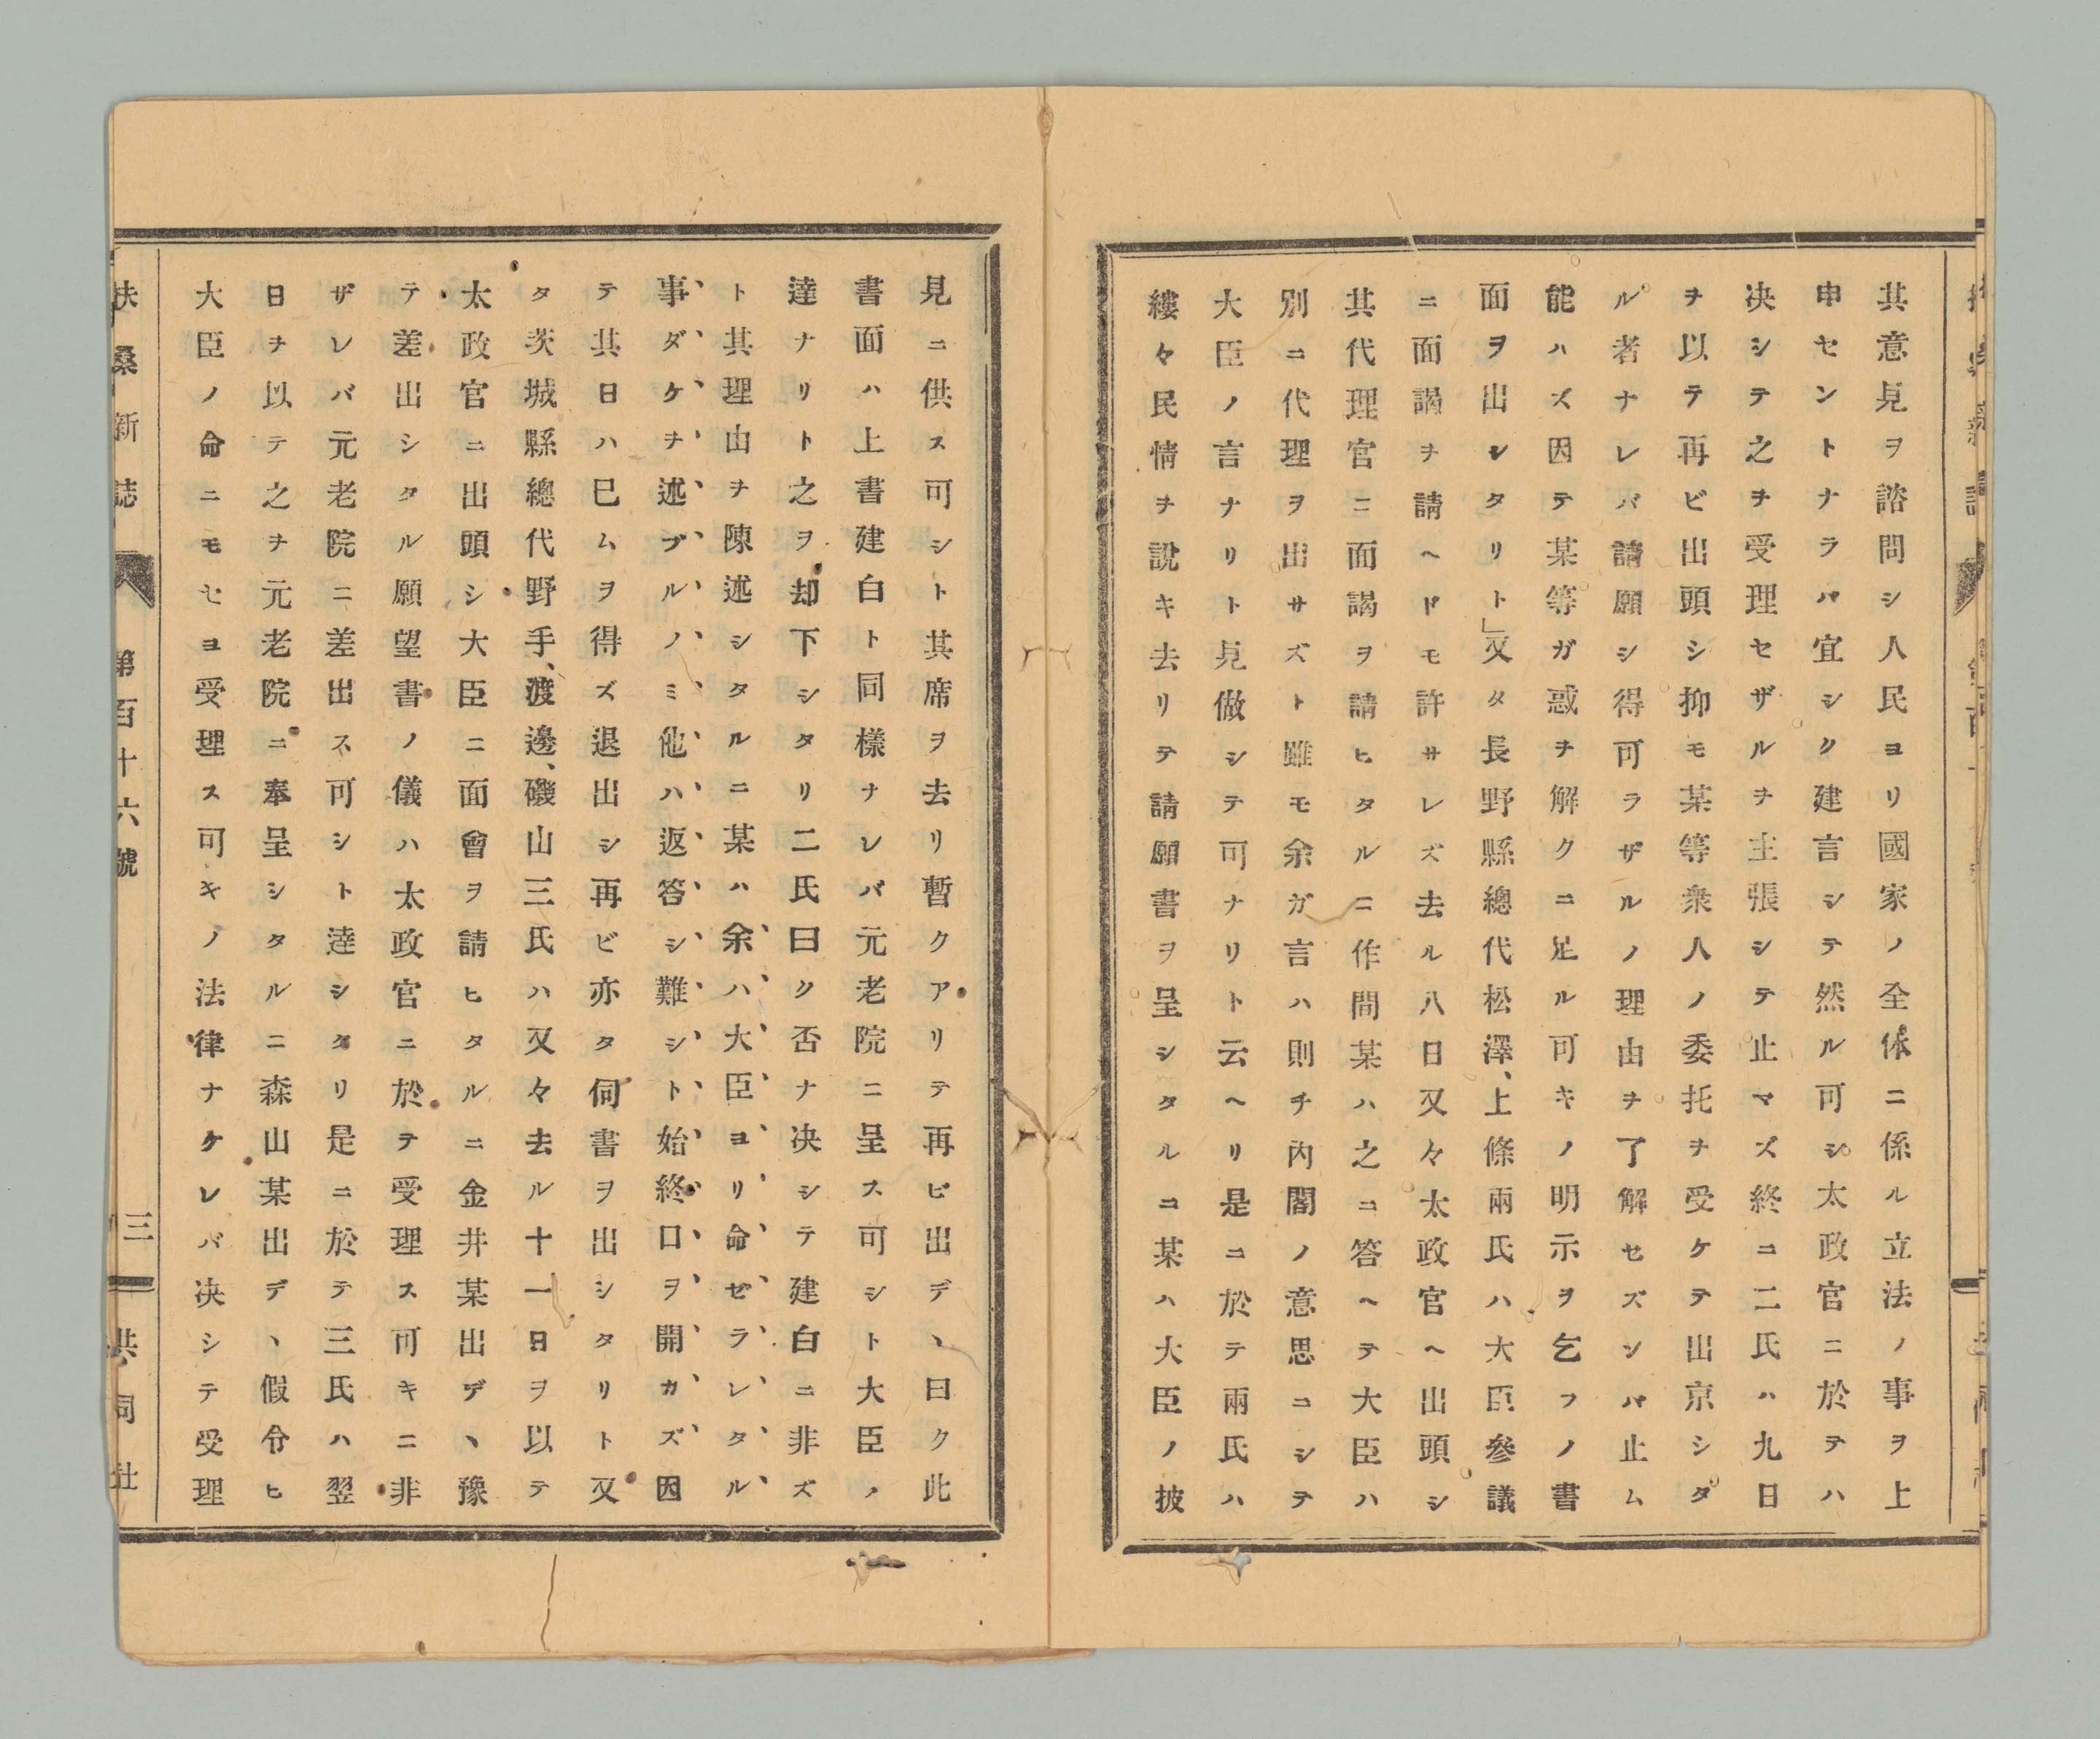 其意見ヲ諮問シ人民ヨリ國家ノ全体ニ係ル立法ノ事ヲ上
申セントナラバ宜シク建言シテ然ル可シ太政官ニ於テハ
决シテ之ヲ受理セザルヲ主張シテ止マズ終ニ二氏ハ九日
ヲ以テ再ビ出頭シ抑モ某等衆人ノ委托ヲ受ケテ出京シタ
ル者ナレバ請願シ得可ラザルノ理由ヲ了解セズンバ止ム
能ハズ因テ某等ガ惑ヲ解クニ足ル可キノ明示ヲ乞フノ書
面ヲ出シタリト」又タ長野縣總代松澤、上條兩氏ハ大臣參議
ニ面謁ヲ請ヘドモ許サレズ去ル八日又々太政官ヘ出頭シ
其代理官ニ面謁ヲ請ヒタルニ作間某ハ之ニ答ヘテ大臣ハ
別ニ代理ヲ出サズト雖モ余ガ言ハ則チ内閣ノ意思ニシテ
大臣ノ言ナリト見做シテ可ナリト云ヘリ是ニ於テ兩氏ハ
縷々民情ヲ説キ去リテ請願書ヲ呈シタルニ某ハ大臣ノ披
見ニ供ス可シト其席ヲ去リ暫クアリテ再ビ出デヽ曰ク此
書面ハ上書建白ト同樣ナレバ元老院ニ呈ス可シト大臣ノ
達ナリト之ヲ却下シタリ二氏曰ク否ナ决シテ建白ニ非ズ
ト其理由ヲ陳述シタルニ某ハ余ハ大臣ヨリ命ゼラレタル
事ダケヲ述ブルノミ他ハ返答シ難シト始終口ヲ開カズ因
テ其日ハ已ムヲ得ズ退出シ再ビ亦タ伺書ヲ出シタリト又
タ茨城縣總代野手、渡邊、磯山三氏ハ又々去ル十一日ヲ以テ
太政官ニ出頭シ大臣ニ面會ヲ請ヒタルニ金井某出デヽ豫
テ差出シタル願望書ノ儀ハ太政官ニ於テ受理ス可キニ非
ザレバ元老院ニ差出ス可シト達シタリ是ニ於テ三氏ハ翌
日ヲ以テ之ヲ元老院ニ奉呈シタルニ森山某出デヽ假令ヒ
大臣ノ命ニモセヨ受理ス可キノ法律ナケレバ决シテ受理
扶桑新誌 第百十六號 三 共同社